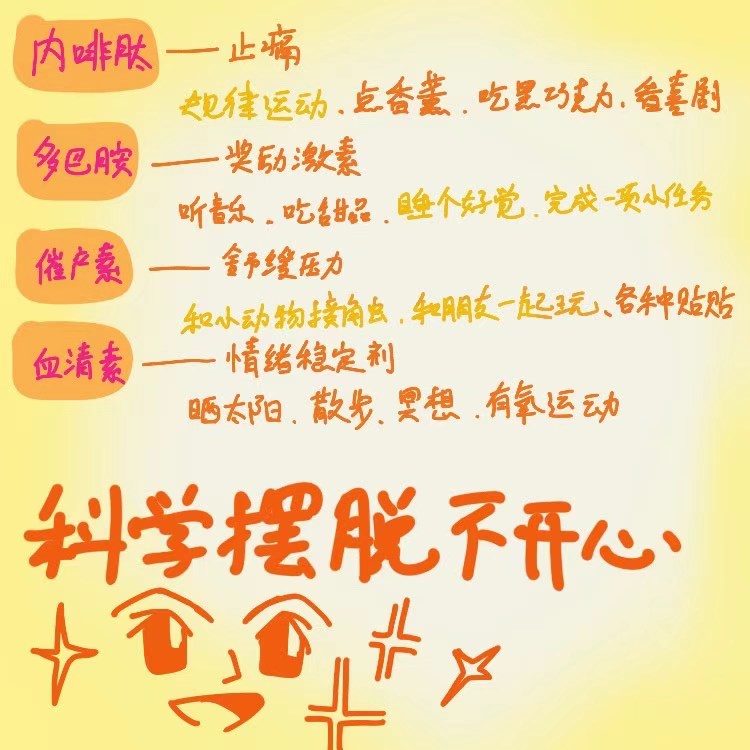 内啡肽——止痛
规律运动、点香薰、吃黑巧克力、看喜剧
多巴胺——奖励激素
听音乐、吃甜品、睡个好觉、完成一项小任务
催产素——舒缓压力
和小动物接触、和朋友一起玩、各种贴贴
血清素——情绪稳定剂
晒太阳、散步、冥想、有氧运动
科学摆脱不开心